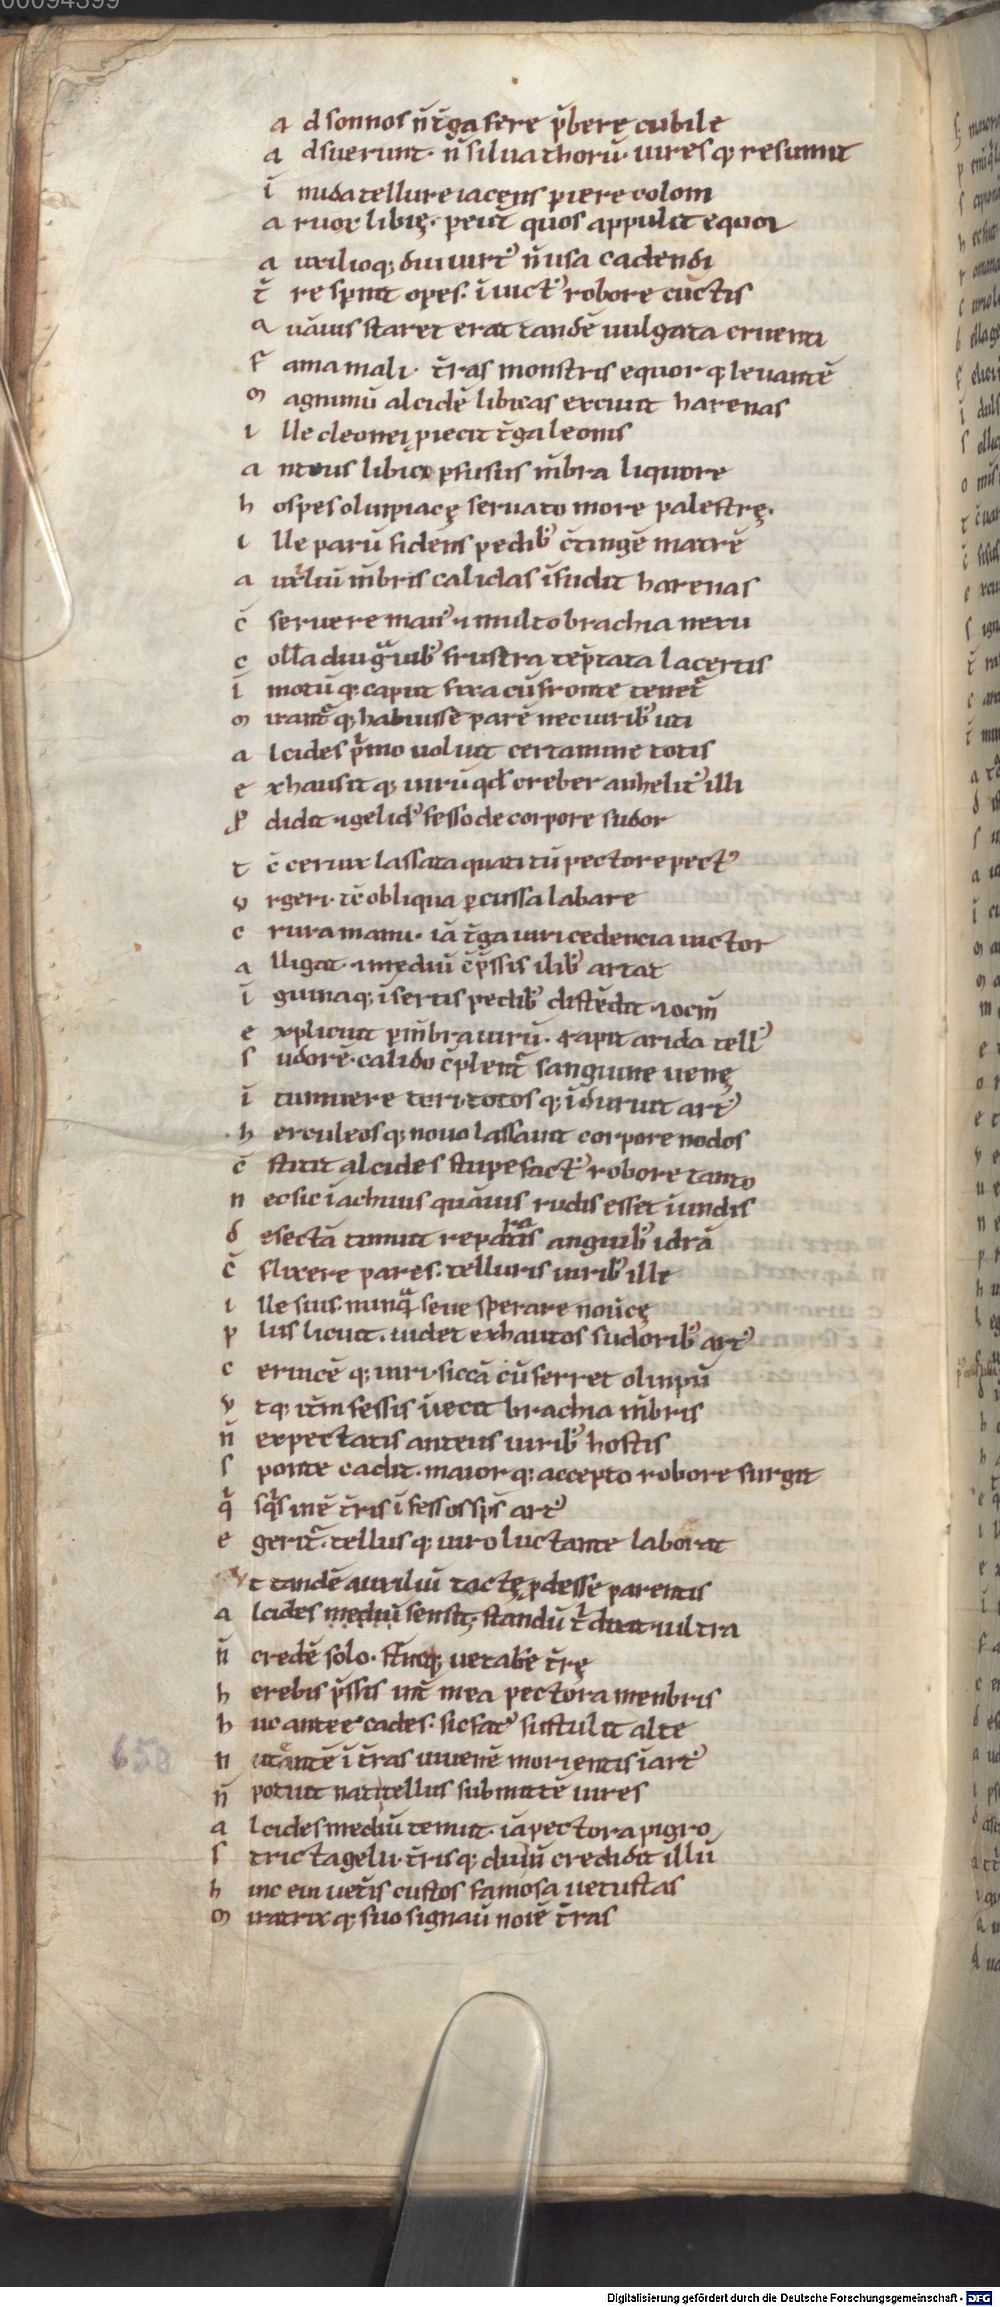 00094399
a d sonnos n̄ t̄ga fere p̄bere cubile
a dsuerunt. n̄ silua thorū. uires q; resumit
ī nuda tellure iacens piere coloni
a ruox libię. periit quos appulit equor
a uxilioq; diu uirt᾽ n̄ usa cadendi
t̄ re spnit opes. ī uict᾽ robore cūctis
a uāuis staret erat tandē uulgata cruenti
f ama mali. t̄ras monstris equor q; leuantē
m agnimū alcidē libicas exciuit harenas
i lle cleonei piecit t̄ga leonis
a nteus libici pfusus mb̄ra liquore
h ospes olimpiacę seruato more palestrę.
i lle parū fidens pedib᾽ c̄tingē matrē
a uxliū mb̄ris calidas īfudit harenas
c̄ seruere man᾽ ⁊ multo brachia nexu
c olla diu g̃uib᾽ frustra tēptata lacertis
ī motū q; caput fixa cū fronte tenet᷑
m irant᷑ q; habuisse parē nec uirib᾽ uti
a lcides p̄mo uoluit certamine totis
e xhausit q; uirū qd̄ creber anhelit᾽ illi
p didit ⁊ gelid᾽ fesso de corpore sudor
t c̄ ceruix lassata quati tū pectore pect᾽
v rgeri. tc̄ obliqua percussa labare
c rura manu. iā t̄ga uiri cedencia uictor
a lligat. ⁊ mediū c̄p̄ssis ilib᾽ artat
ī guinaq; īsertis pedib᾽ distēdit ⁊ ocm̄
e xplicuit per mb̄ra uirū. rapit arida tell᾽
s udorē. calido c̄plent᷑ sanguine uenę
ī tumuere tori. totos q; īduruit art᾽
h erculeos q; nouo lassauit corpore nodos
c̄ stitit alcides stupefact᾽ robore tanto
n ec sic īachiuis quāuis rudis esset ī undis
d esectā timuit reparatis anguib᾽ idrā
c̄ flixere pares. telluris uirib᾽ ille
i lle suis. nunq̄ seue sperare nou̅cę
p lus licuit. uidet exhautos sudorib᾽ art᾽
c eruicē q; uiri. siccā cū ferret olimpū
v tq; it̄m fessis iiecit brachia mb̄ris
n̄ expectatis anteus uirib᾽ hostis
s ponte cadit. maior q; accepto robore surgit
q̄ sq̄s inē t̄ris ī fessos sp̄s art᾽
e gerit᷑. tellus q; uiro luctante laborat
v t tandē auxiliū tactę pdesse parentis
a lcides mediū sensit. standū t̄ dixit ⁊ ultra
n̄ credē solo. st̄niq; uetab̄e t̄rę
h erebis p̄ssis int̄ mea pectora menbris
h uc antee cades. sic fat᾽ sustulit alte
n itantē ī t̄ras iuuenē morientis ī art᾽
n̄ potuit nati tellus submittē uires
a lcides mediū tenuit. iā pectora pigro
s tricta gelu. t̄ris q; diu n̄ credidit illū
h inc eui uet̄is custos famosa uetustas
m iratrix q; suo signauī noīe t̄ras
650
Digitalisierung gefördert durch die Deutsche Forschungsgemeinschaft - DFG